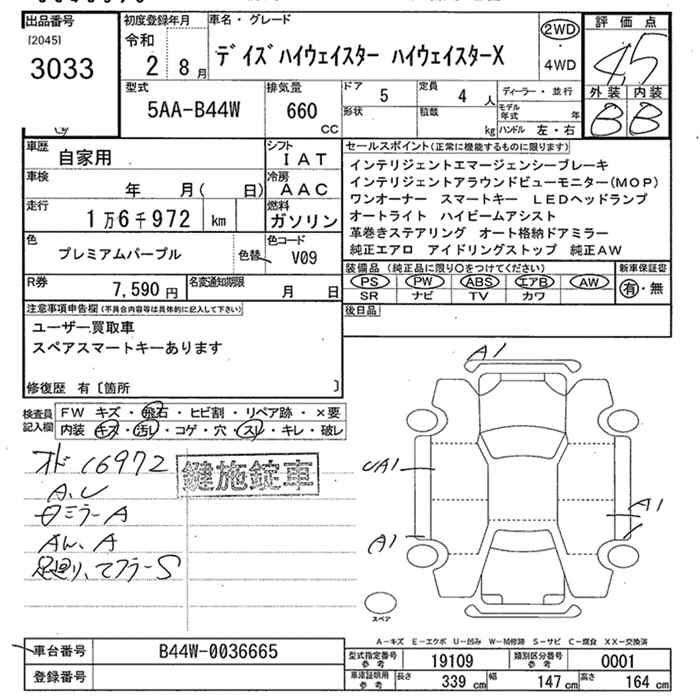 出品番号
[2045]
3033
初度登録年月
令和
2 8月
車名・グレード
デイズハイウェイスター ハイウェイスターX
2WD
4WD
評価点
4.5
外装 内装
B B
型式
5AA-B44W
排気量
660
CC
ドア 5
定員 4 人
形状
積載
kg
ディーラー・並行
モデル年式 年
ハンドル 左・右
車歴 自家用
シフト
IAT
車検 年 月( 日)
冷房
AAC
走行 1万6千972 km
燃料
ガソリン
色 プレミアムパープル
色替
色コード
V09
R券 7,590円
名変通知期限 月 日
セールスポイント(正常に機能するものに限ります)
インテリジェントエマージェンシーブレーキ
インテリジェントアラウンドビューモニター(MOP)
ワンオーナー スマートキー LEDヘッドランプ
オートライト ハイビームアシスト
革巻きステアリング オート格納ドアミラー
純正エアロ アイドリングストップ 純正AW
装備品(純正品に限り○をつけてください)
PS PW ABS エアB AW
SR ナビ TV カワ
新車保証書
有・無
後日品
注意事項申告欄(不具合内容等は具体的に記入して下さい)
ユーザー買取車
スペアスマートキーあります
修復歴 有〔箇所 〕
検査員記入欄
FW キズ・飛石・ヒビ割・リペア跡・×要
内装 キズ・汚レ・コゲ・穴・スレ・キレ・破レ
オド 16972
鍵施錠車
A、U
ミラーA
A
足廻り、マフラーS
A1
UA1
A1
A1
スペア
A－キズ E－エクボ U－凹み W－補修跡 S－サビ C－腐食 XX－交換済
車台番号 B44W-0036665
登録番号
型式指定番号 参考 19109
類別区分番号 参考 0001
車庫証明用 参考 長さ 339 cm 幅 147 cm 高さ 164 cm